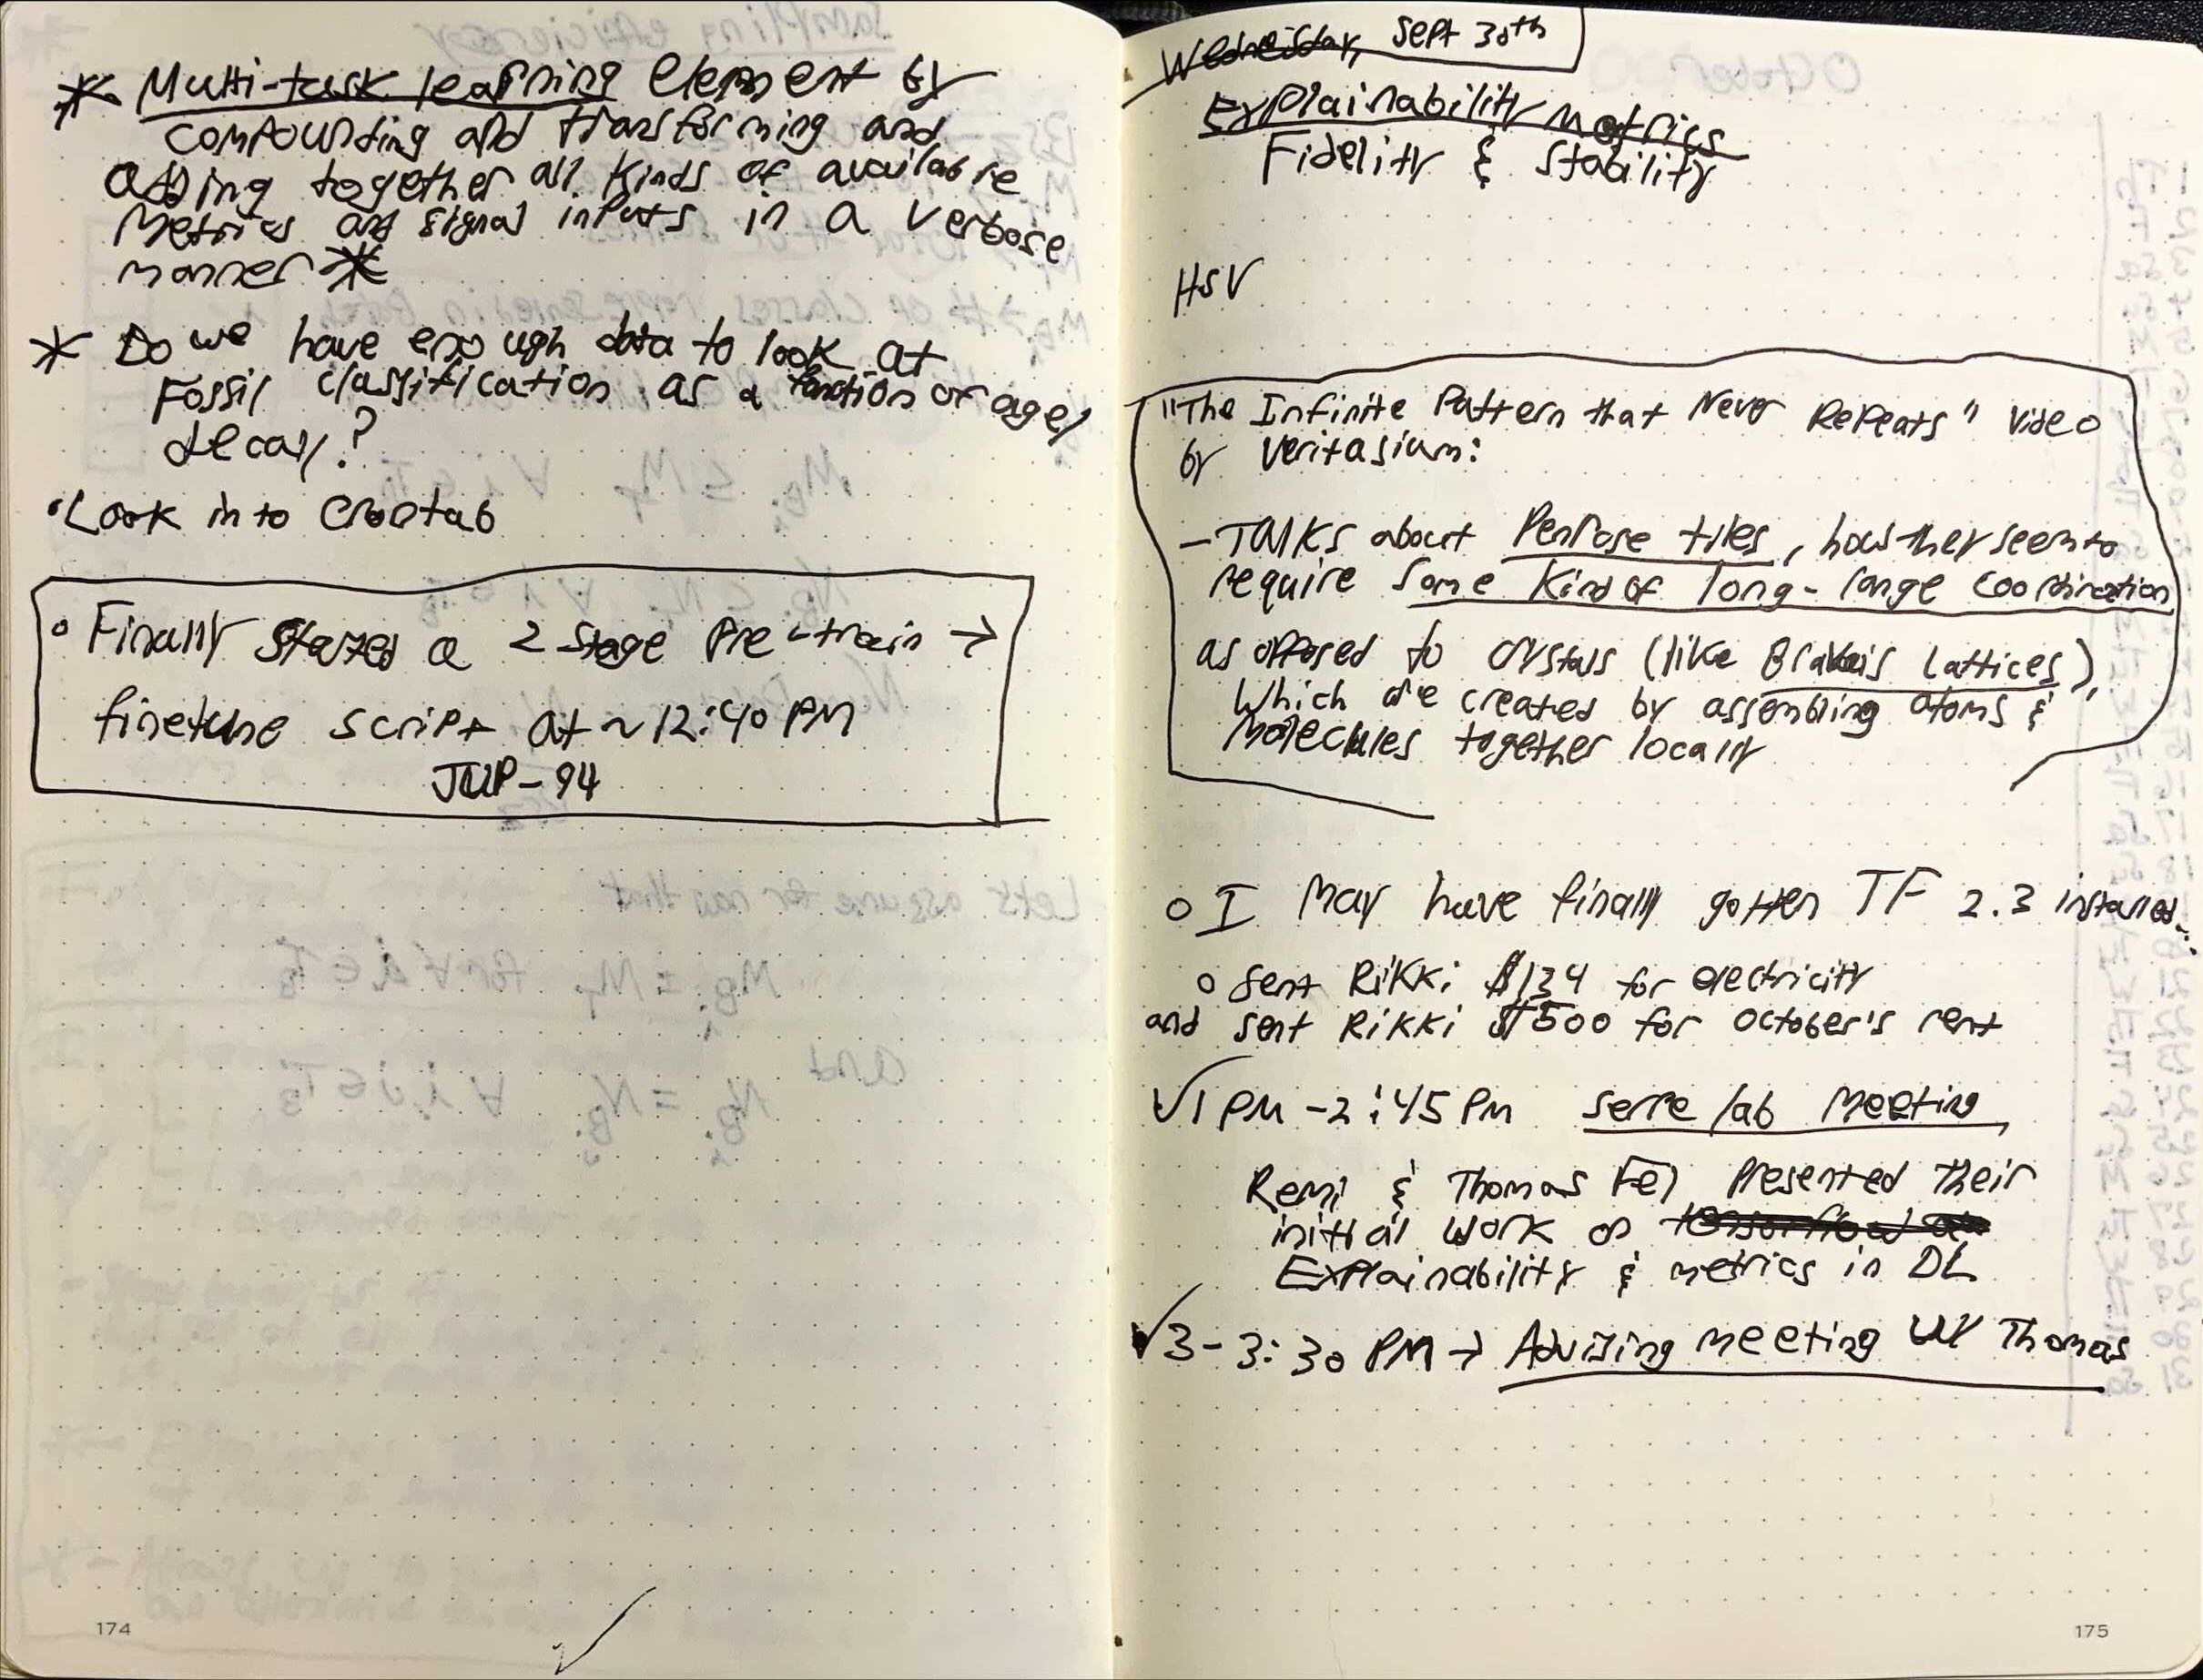 * Multi-task learning element by
compounding and transforming and
adding together all kinds of available
metrics and signal inputs in a verbose
manner *
* Do we have enough data to look at
Fossil classification as a function of age/
decay?
• Look into Crontab
o Finally started a 2 stage Pre-train →
finetune script at ~12:40 PM
JUP-94
174
Wednesday, Sept 30th
Explainability Metrics
Fidelity & Stability
HSV
"The Infinite Pattern that Never Repeats" video
by Veritasium:
- Talks about Penrose tiles, how they seem to
require some kind of long-range coordination
as opposed to crystals (like Bravais Lattices),
which are created by assembling atoms &
Molecules together locally
o I may have finally gotten TF 2.3 installed...
o Sent Rikki $134 for electricity
and sent Rikki $500 for October's rent
✓ 1 PM - 2:45 PM Serre lab Meeting,
Remi & Thomas Fel presented their
initial work on
Explainability & metrics in DL
✓ 3-3:30 PM → Advising meeting w/ Thomas
175